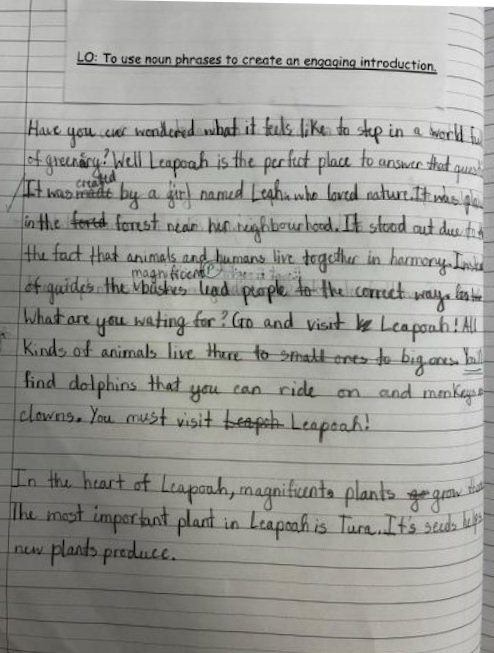 LO: To use noun phrases to create an engaging introduction.
Have you ever wondered what it feels like to step in a world
of greenery? Well Leapoah is the perfect place to answer that
created
It was made by a girl named Leah who loved nature. It was
in the forest near her neighbourhood. It stood out due
the fact that animals and humans live together in harmony.
magnificent
of guides the bushes lead people to the correct way.
What are you wating for? Go and visit Leapoah! All
Kinds of animals live there to small ones to big ones.
find dolphins that you can ride on and monkeys
clowns. You must visit Leapoh Leapoah!
In the heart of Leapoah, magnificents plants go grow
The most important plant in Leapoah is Tura. It's seeds helps
new plants produce.